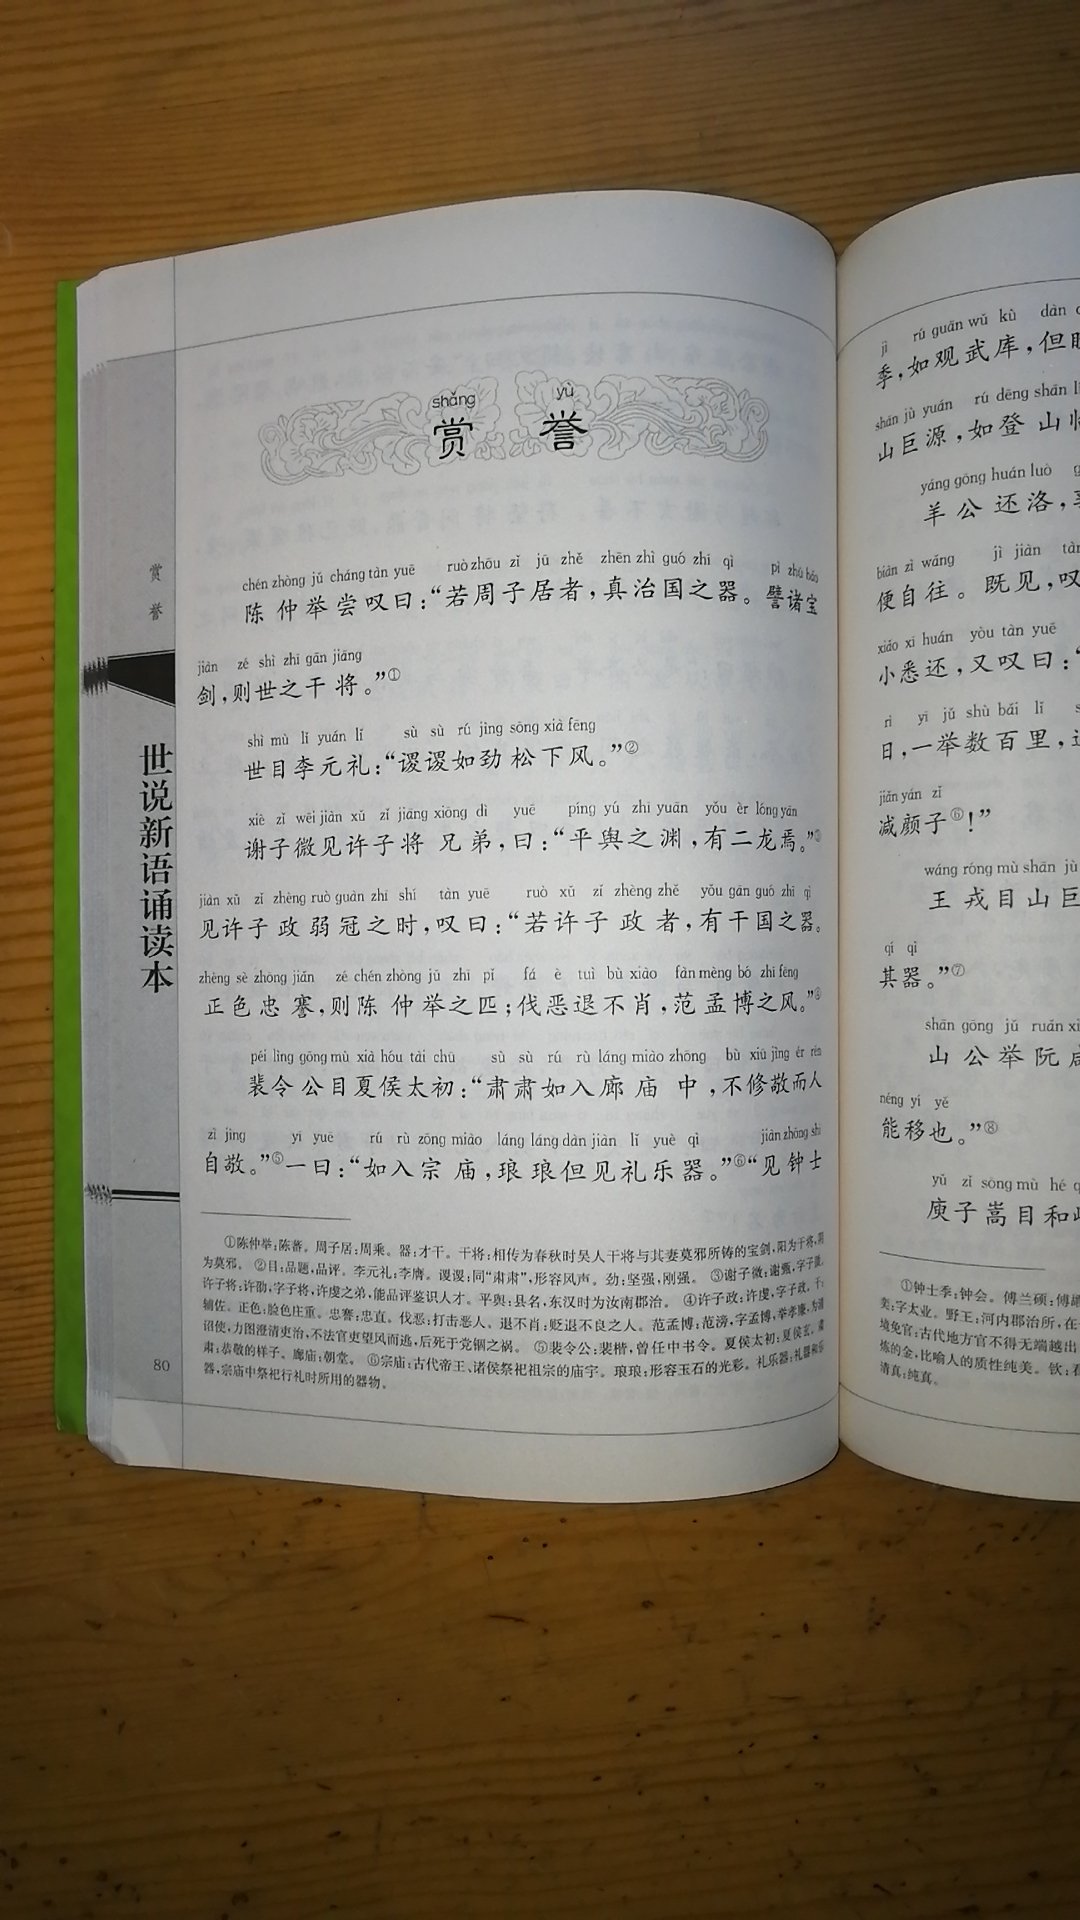 shǎng yù
赏 誉
chén zhòng jǔ cháng tàn yuē ruò zhōu zǐ jū zhě zhēn zhì guó zhī qì pì zhū bǎo
陈仲举尝叹曰:“若周子居者,真治国之器。譬诸宝
jiàn zé shì zhī gān jiāng
剑,则世之干将。”①
shì mù lǐ yuán lǐ sù sù rú jìng sōng xià fēng
世目李元礼:“谡谡如劲松下风。”②
xiè zǐ wēi jiàn xǔ zǐ jiāng xiōng dì yuē píng yú zhī yuān yǒu èr lóng yān
谢子微见许子将兄弟,曰:“平舆之渊,有二龙焉。”③
jiàn xǔ zǐ zhèng ruò guàn zhī shí tàn yuē ruò xǔ zǐ zhèng zhě yǒu gàn guó zhī qì
见许子政弱冠之时,叹曰:“若许子政者,有干国之器。
zhèng sè zhōng jiǎn zé chén zhòng jǔ zhī pǐ fá è tuì bù xiào fàn mèng bó zhī fēng
正色忠謇,则陈仲举之匹;伐恶退不肖,范孟博之风。”④
péi lìng gōng mù xià hóu tài chū sù sù rú rù láng miào zhōng bù xiū jìng ér rén
裴令公目夏侯太初:“肃肃如入廊庙中,不修敬而人
zì jìng yī yuē rú rù zōng miào láng láng dàn jiàn lǐ yuè qì jiàn zhōng shì
自敬。”⑤一曰:“如入宗庙,琅琅但见礼乐器。”⑥“见钟士
①陈仲举:陈蕃。周子居:周乘。器:才干。干将:相传为春秋时吴人干将与其妻莫邪所铸的宝剑,阳为干将,阴
为莫邪。 ②目:品题,品评。李元礼:李膺。谡谡:同“肃肃”,形容风声。劲:坚强,刚强。 ③谢子微:谢甄,字子微。
许子将:许劭,字子将,许虔之弟,能品评鉴识人才。平舆:县名,东汉时为汝南郡治。 ④许子政:许虔,字子政。干:
辅佐。正色:脸色庄重。忠謇:忠直。伐恶:打击恶人。退不肖:贬退不良之人。范孟博:范滂,字孟博,举孝廉,为清
诏使,力图澄清吏治,不法官吏望风而逃,后死于党锢之祸。 ⑤裴令公:裴楷,曾任中书令。夏侯太初:夏侯玄。肃
肃:恭敬的样子。廊庙:朝堂。 ⑥宗庙:古代帝王、诸侯祭祀祖宗的庙宇。琅琅:形容玉石的光彩。礼乐器:礼器和乐
器,宗庙中祭祀行礼时所用的器物。
赏誉
世说新语诵读本
80
jì rú guān wǔ kù dàn
季,如观武库,但
shān jù yuán rú dēng shān
山巨源,如登山
yáng gōng huán luò
羊公还洛,
biàn zì wǎng jì jiàn tàn
便自往。既见,叹
xiǎo xī huán yòu tàn yuē
小悉还,又叹曰:“
rì yī jǔ shù bǎi lǐ
日,一举数百里,
jiǎn yán zǐ
减颜子⑥!”
wáng róng mù shān jù
王戎目山巨
qí qì
其器。”⑦
shān gōng jǔ ruǎn
山公举阮
néng yí yě
能移也。”⑧
yǔ zǐ sōng mù hé
庾子嵩目和
①钟士季:钟会。傅兰硕:傅
奕:字太业。野王:河内郡治所,在
境免官:古代地方官不得无端越出
炼的金,比喻人的质性纯美。钦:
清真:纯真。